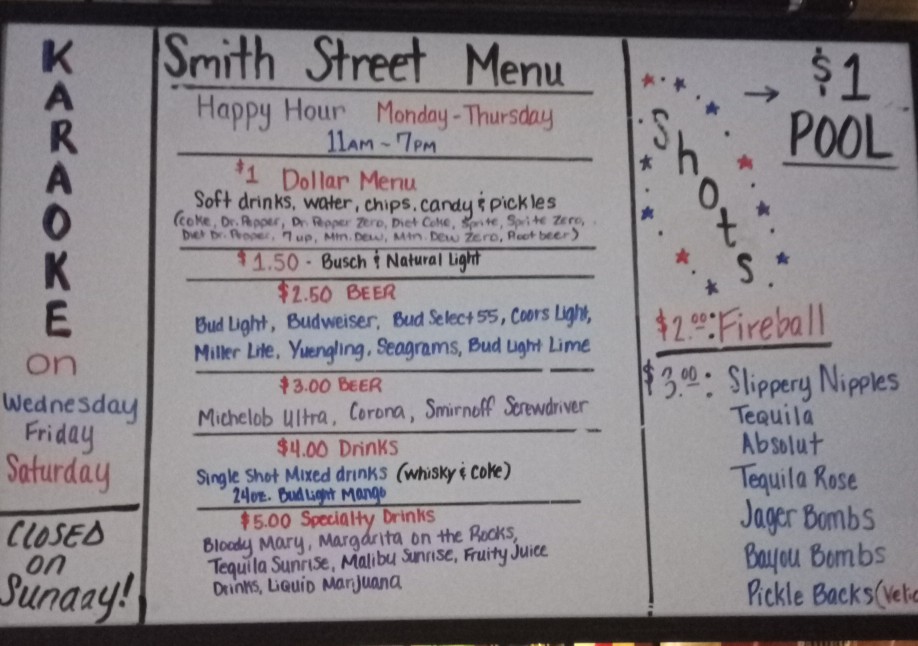 KARAOKE
on
Wednesday
Friday
Saturday
CLOSED
on
Sunday!
Smith Street Menu
Happy Hour Monday-Thursday
11AM ~ 7PM
$1 Dollar Menu
Soft drinks, water, chips, candy & pickles
(Coke, Dr. Pepper, Dr. Pepper Zero, Diet Coke, Sprite, Sprite Zero,
Diet Dr. Pepper, 7up, Mtn. Dew, Mtn. Dew Zero, Rootbeer)
$1.50 - Busch & Natural Light
$2.50 BEER
Bud Light, Budweiser, Bud Select 55, Coors Light,
Miller Lite, Yuengling, Seagrams, Bud Light Lime
$3.00 BEER
Michelob Ultra, Corona, Smirnoff Screwdriver
$4.00 Drinks
Single Shot Mixed drinks (whisky & coke)
24oz. Bud Light Mango
$5.00 Specialty Drinks
Bloody Mary, Margarita on the Rocks,
Tequila Sunrise, Malibu Sunrise, Fruity Juice
Drinks, Liquid Marijuana
→ $1
POOL
Shots
$2.00: Fireball
$3.00: Slippery Nipples
Tequila
Absolut
Tequila Rose
Jager Bombs
Bayou Bombs
Pickle Backs